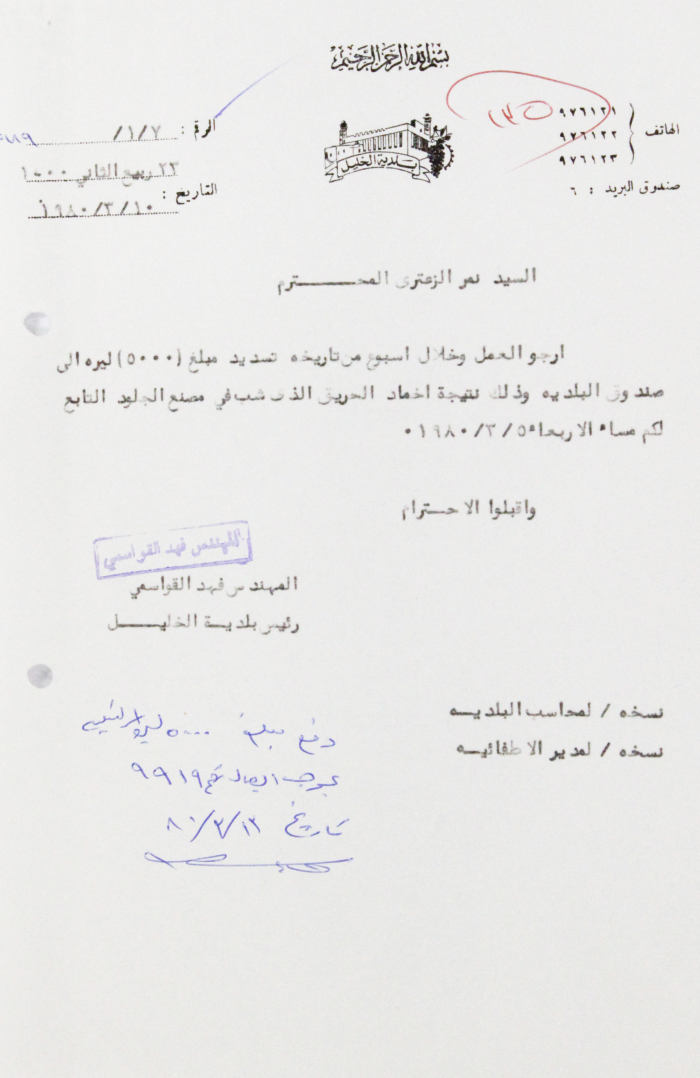 بسم الله الرحمن الرحيم
الهاتف
٩٧٦١٢١
٩٧٦١٢٢
٩٧٦١٢٣
صندوق البريد : ٦
١٣٥
بلدية الخليل
الرقم : ١/٧/
٢٣ ربيع الثاني ١٤٠٠
التاريخ : ١٩٨٠/٣/١٠م
السيد نمر الزعترى المحـــــترم
ارجو العمل وخلال اسبوع من تاريخه تسديد مبلغ (٥٠٠٠) ليره الى
صندوق البلديه وذلك نتيجة اخماد الحريق الذى شب في مصنع الجلود التابع
لكم مساء الاربعاء ١٩٨٠/٣/٥ ٠
واقبلوا الاحـترام
المهندس فهد القواسمي
المهندس فهد القواسمي
رئيس بلديـة الخليـــل
نسخه / لمحاسب البلديـه
نسخه / لمدير الاطفائيـه
دفع مبلغ ٥٠٠٠
بموجب ايصال رقم ٩٩١٩
تاريخ ٨٠/٣/١٣